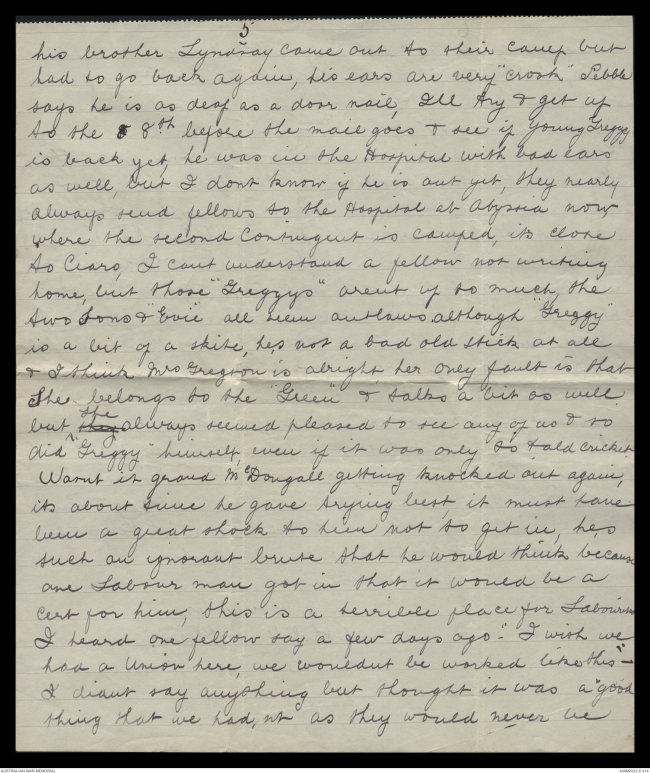 5
his brother Lyndsay came out to their camp but
had to go back again, his ears are very "crook" Pebble
says he is as deaf as a door nail, Ill try & get up
to the 8th before the mail goes & see if young Greggy
is back yet, he was in the Hospital with bad ears
as well, but I dont know if he is out yet, they nearly
always send fellows to the Hospital at Abyssia now
where the second Contingent is camped, its close
to Ciaro, I cant understand a fellow not writing
home, but those "Greggys" arent up to much, the
two sons & "Evie" all seem outlaws although "Greggy"
is a bit of a skite, he,s not a bad old stick at all
& I think Mrs Gregton is alright, her only fault is that
She belongs to the "Green" & talks a bit as well
but they she always seemed pleased to see any of us & so
did "Greggy" himself, even if it was only to talk cricket
Warnt it grand McDougall getting knocked out again,
its about time he gave trying best, it must have
been a great shock to him not to get in, he,s
such an ignorant brute that he would think because
one Labour man got in that it would be a
cert for him, this is a terrible place for Labourites
I heard one fellow say a few days ago "I wish we
had a Union here, we wouldnt be worked like this" –
I didnt say anything but thought it was a "good
thing that we had,nt as they would never be
AUSTRALIAN WAR MEMORIAL